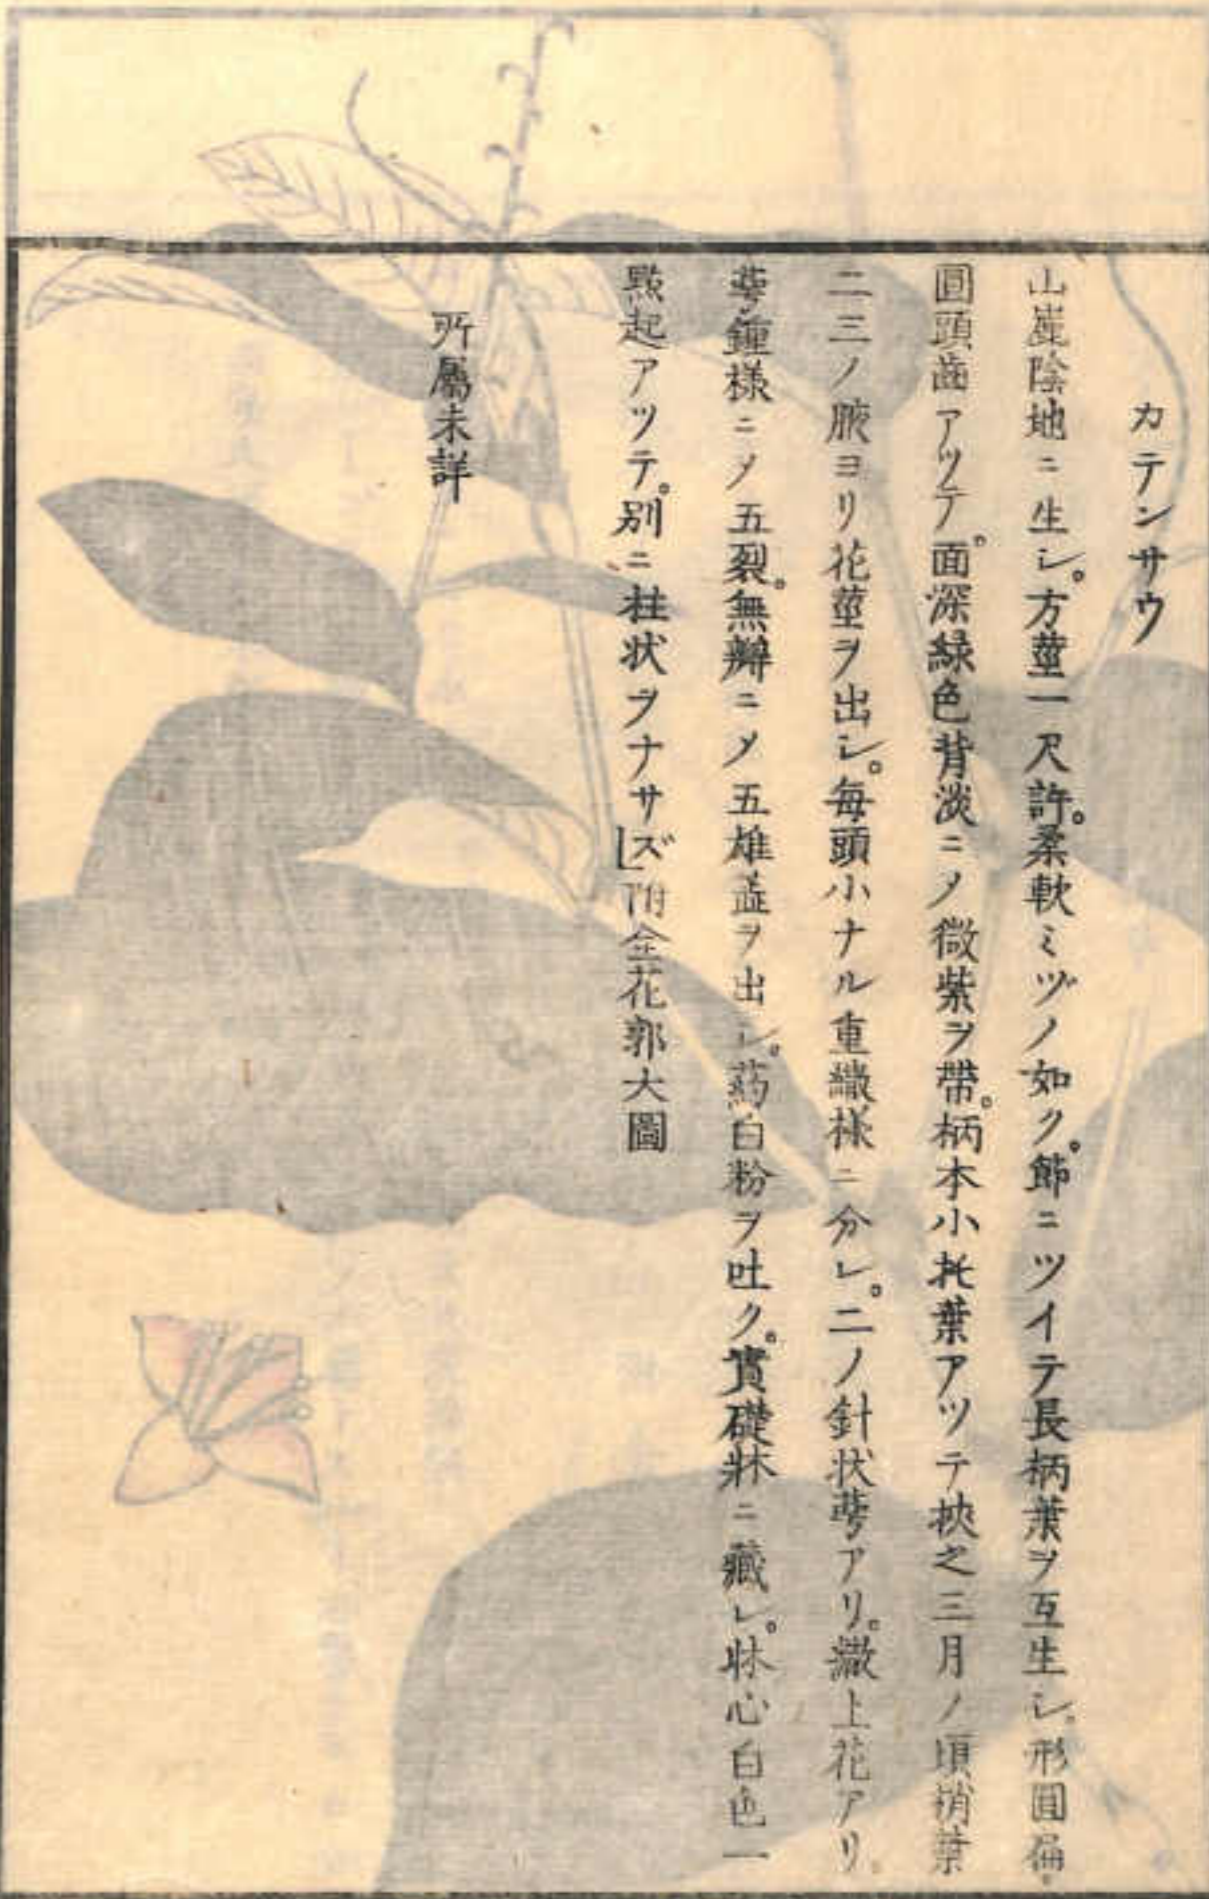 カテンサウ
山崑陰地ニ生シ。方莖一尺許。柔軟ミヅノ如ク。節ニツイテ長柄葉ヲ互生シ。形圓扁。
圓頭齒アツテ。面深緑色背淡ニノ微紫ヲ帯。柄本小托葉アツテ挾之三月ノ頃梢葉
二三ノ腋ヨリ花莖ヲ出シ。毎頭小ナル重繖様ニ分レ。二ノ針状萼アリ。繖上花アリ。
萼鐘様ニノ五裂。無瓣ニメ五雄蕋ヲ出シ。葯白粉ヲ吐ク。實礎牀ニ藏レ。牀心白色一
㸃起アツテ。別ニ柱状ヲナサズ」附全花郭大圖
所屬未詳